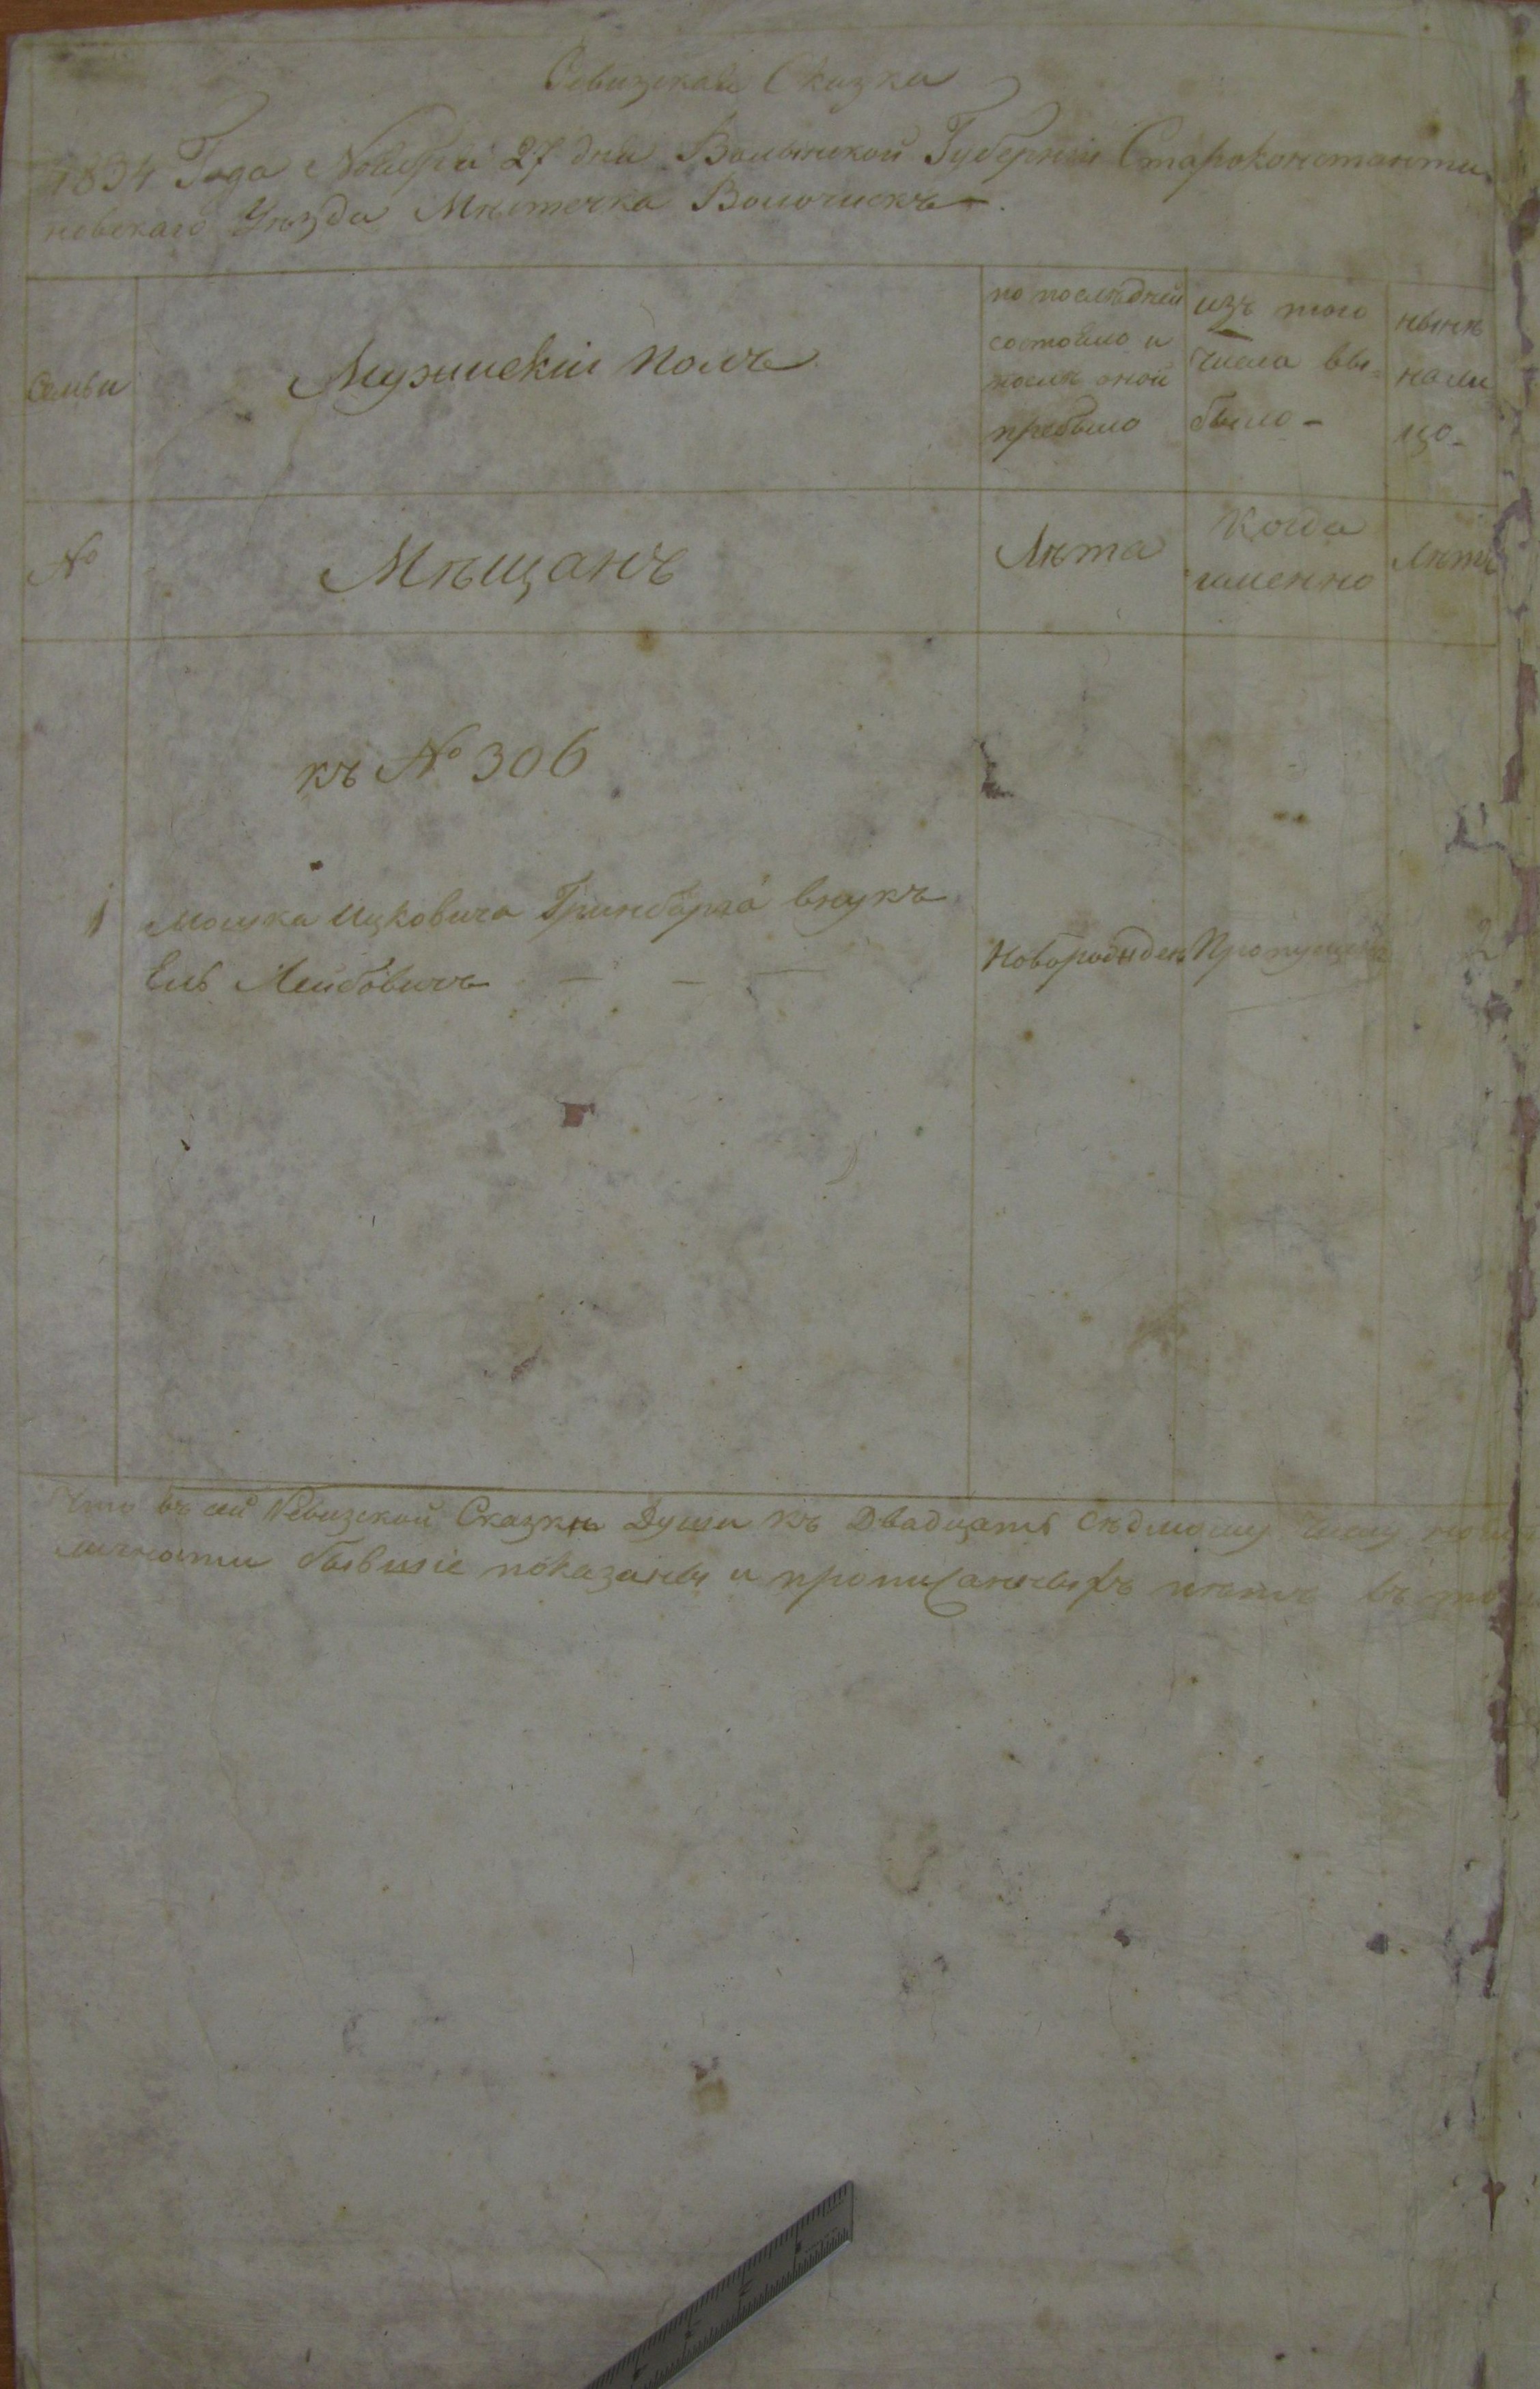 Ревизская Сказка
1834 Года Ноября 27 дня Волынской Губернии Староконстанти
новскаго Уѣзда Мѣстечка Волочискъ
Семьи
Мужискій полъ
по послѣдней
состояло и
послѣ оной
прибыло
изъ того
числа вы=
было
нынѣ
нали
цо
№
Мѣщанъ
Лѣта
Когда
именно
Лѣта
къ № 306
1 Мошка Ицковича Гринберга внукъ
Ель Лейбовичъ
Новорожден
Пропущенъ
2
Что въ сей Ревизской Сказкѣ Души къ Двадцать Седмому числу
личности бывшіе показаны и прописанныхъ нѣтъ въ